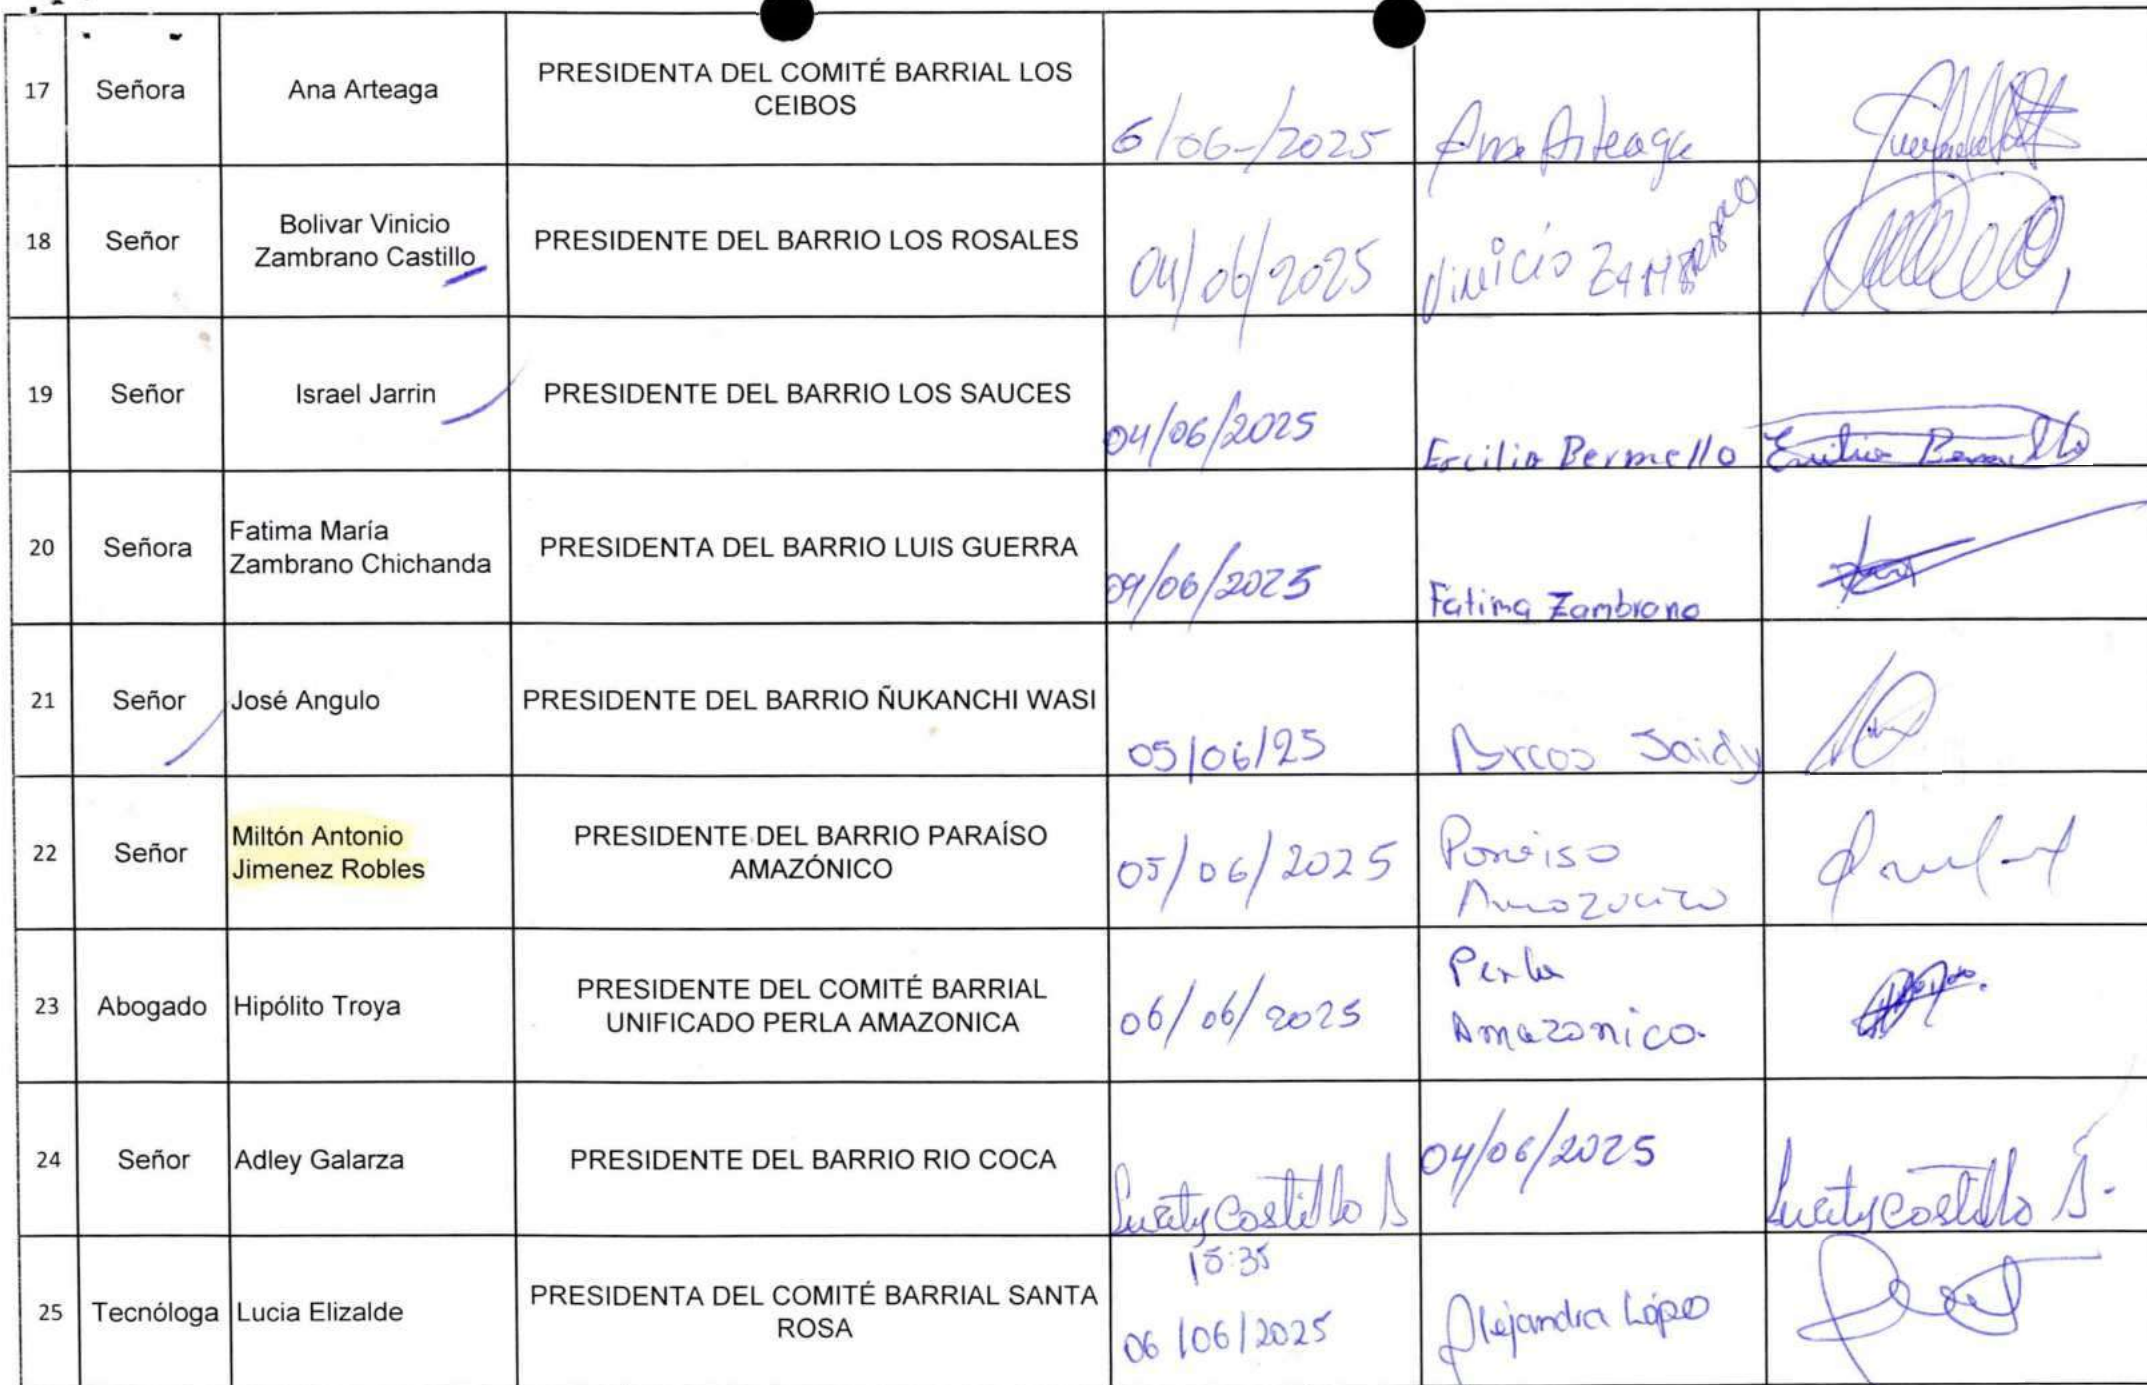 17 Señora Ana Arteaga PRESIDENTA DEL COMITÉ BARRIAL LOS
CEIBOS
6/06-/2025 Ana Arteaga
18 Señor Bolivar Vinicio
Zambrano Castillo PRESIDENTE DEL BARRIO LOS ROSALES
04/06/2025 Vinicio ZAMBRANO
19 Señor Israel Jarrin PRESIDENTE DEL BARRIO LOS SAUCES
04/06/2025 Ercilia Bermello
20 Señora Fatima María
Zambrano Chichanda PRESIDENTA DEL BARRIO LUIS GUERRA
09/06/2025 Fatima Zambrano
21 Señor José Angulo PRESIDENTE DEL BARRIO ÑUKANCHI WASI
05/06/25 Arcos Saidy
22 Señor Miltón Antonio
Jimenez Robles PRESIDENTE DEL BARRIO PARAÍSO
AMAZÓNICO
05/06/2025 Paraiso
23 Abogado Hipólito Troya PRESIDENTE DEL COMITÉ BARRIAL
UNIFICADO PERLA AMAZONICA
06/06/2025 Perla
Amazonica.
24 Señor Adley Galarza PRESIDENTE DEL BARRIO RIO COCA
Castillo 04/06/2025 Castillo
25 Tecnóloga Lucia Elizalde PRESIDENTA DEL COMITÉ BARRIAL SANTA
ROSA
15:35
06/06/2025 Alejandra López